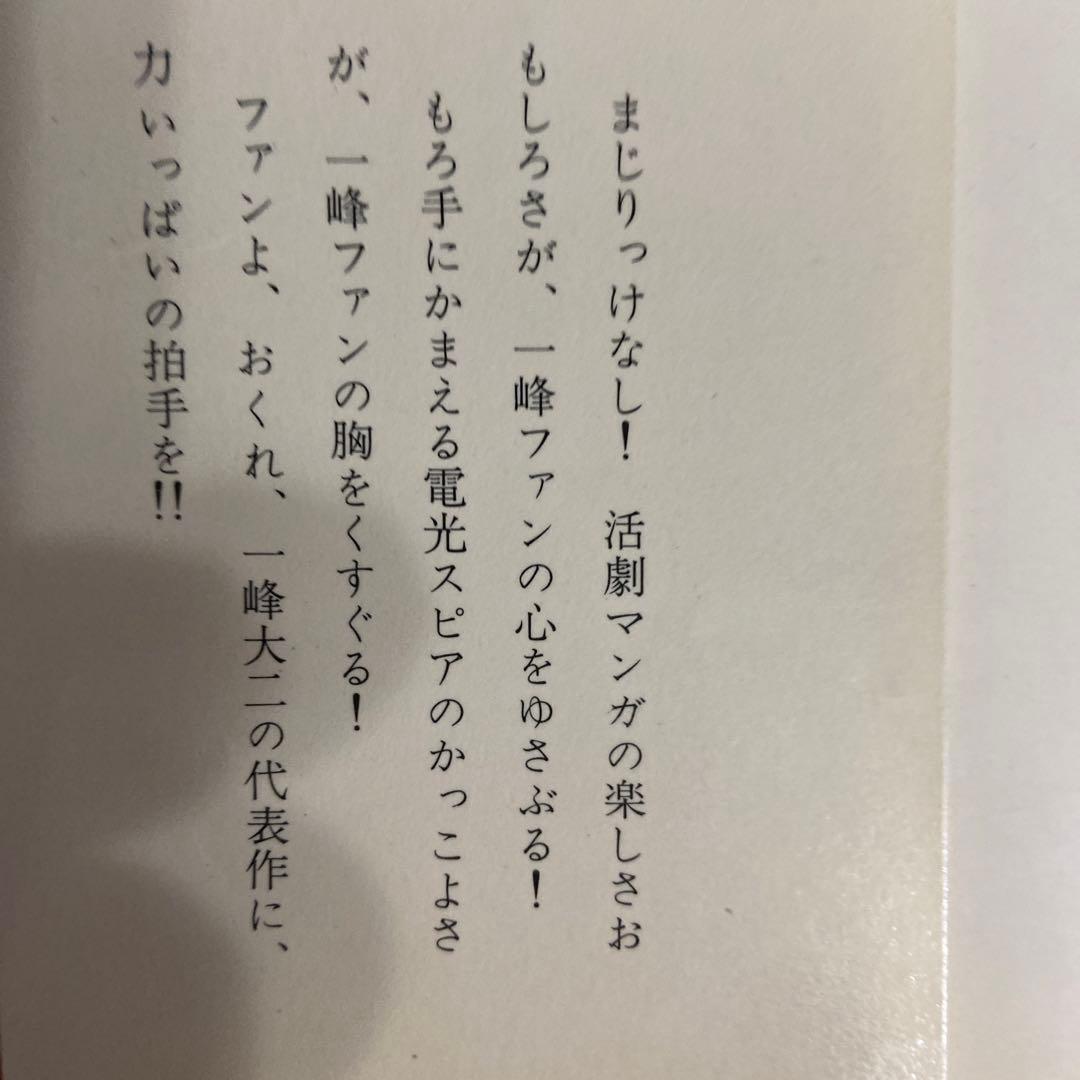 まじりっけなし！　活劇マンガの楽しさお
もしろさが、一峰ファンの心をゆさぶる！
もろ手にかまえる電光スピアのかっこよさ
が、一峰ファンの胸をくすぐる！
ファンよ、おくれ、一峰大二の代表作に、
力いっぱいの拍手を!!